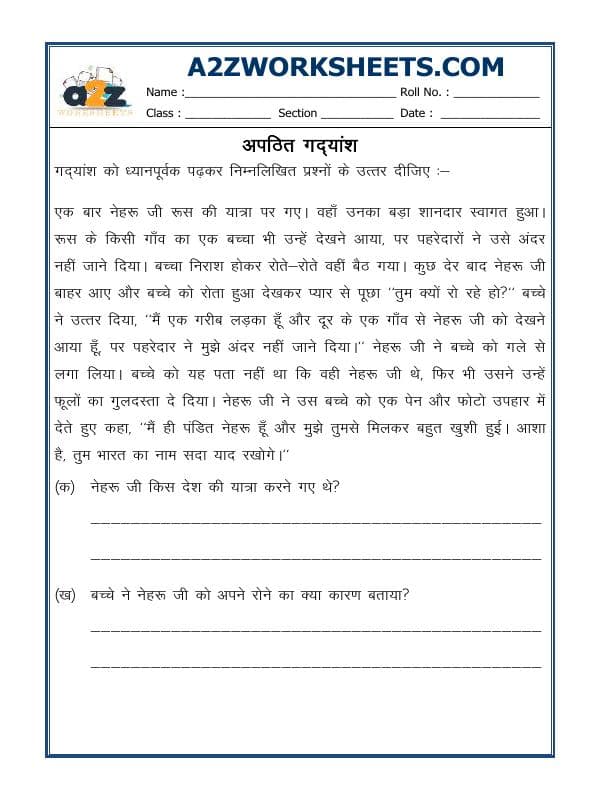 A2ZWORKSHEETS.COM
a2z
WORKSHEETS
Name :________________________________ Roll No. : _____________
Class : _____________ Section ___________ Date : _______________
अपठित गद्यांश
गद्यांश को ध्यानपूर्वक पढ़कर निम्नलिखित प्रश्नों के उत्तर दीजिए :–
एक बार नेहरू जी रूस की यात्रा पर गए। वहाँ उनका बड़ा शानदार स्वागत हुआ।
रूस के किसी गाँव का एक बच्चा भी उन्हें देखने आया, पर पहरेदारों ने उसे अंदर
नहीं जाने दिया। बच्चा निराश होकर रोते–रोते वहीं बैठ गया। कुछ देर बाद नेहरू जी
बाहर आए और बच्चे को रोता हुआ देखकर प्यार से पूछा "तुम क्यों रो रहे हो?" बच्चे
ने उत्तर दिया, "मैं एक गरीब लड़का हूँ और दूर के एक गाँव से नेहरू जी को देखने
आया हूँ, पर पहरेदार ने मुझे अंदर नहीं जाने दिया।" नेहरू जी ने बच्चे को गले से
लगा लिया। बच्चे को यह पता नहीं था कि वही नेहरू जी थे, फिर भी उसने उन्हें
फूलों का गुलदस्ता दे दिया। नेहरू जी ने उस बच्चे को एक पेन और फोटो उपहार में
देते हुए कहा, "मैं ही पंडित नेहरू हूँ और मुझे तुमसे मिलकर बहुत खुशी हुई। आशा
है, तुम भारत का नाम सदा याद रखोगे।"
(क) नेहरू जी किस देश की यात्रा करने गए थे?
(ख) बच्चे ने नेहरू जी को अपने रोने का क्या कारण बताया?